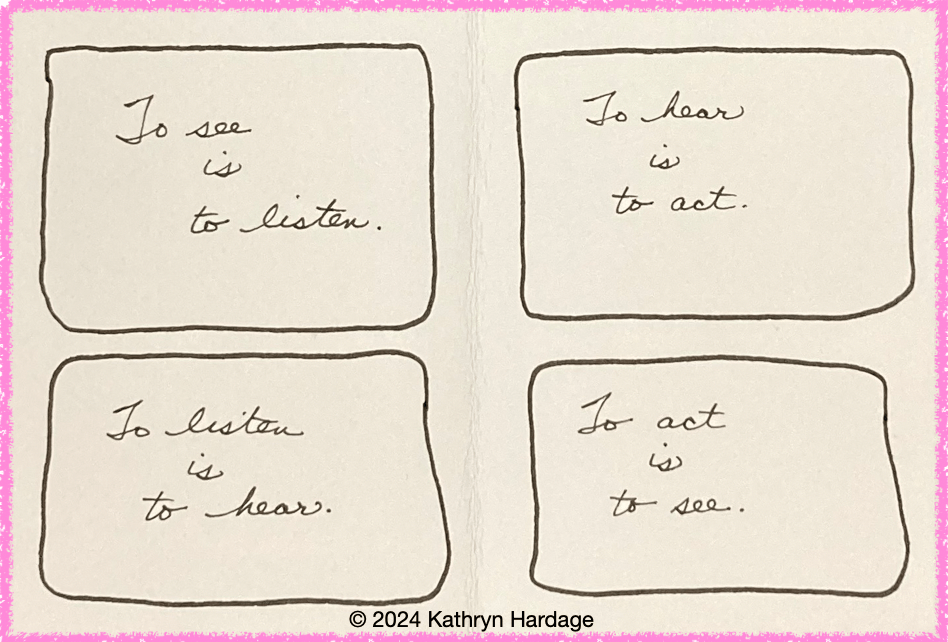 To see
is
to listen.
To listen
is
to hear.
To hear
is
to act.
To act
is
to see.
© 2024 Kathryn Hardage